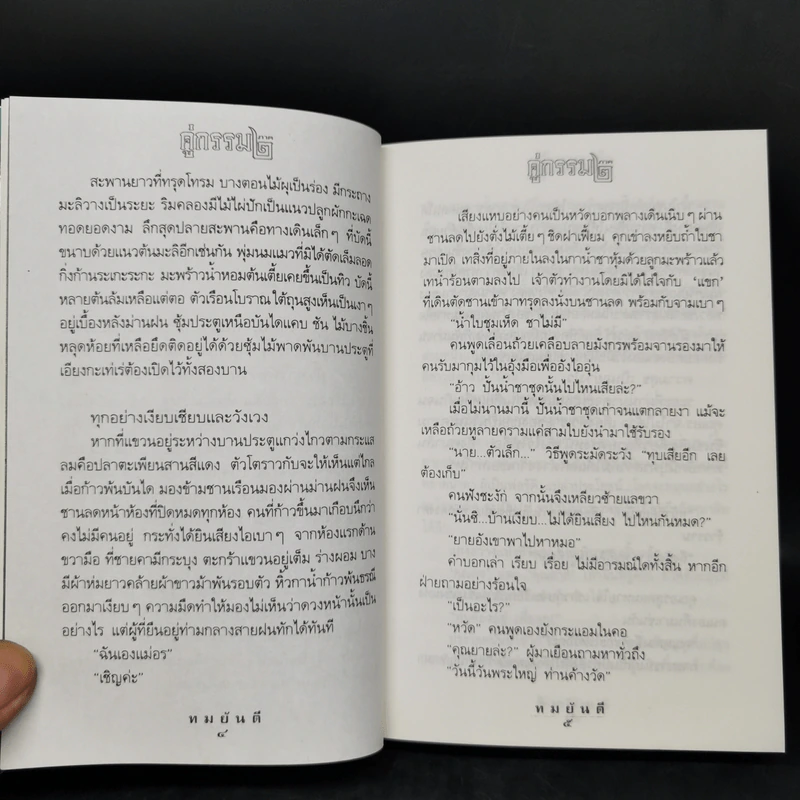 คู่กรรม ๒
สะพานยาวที่ทรุดโทรม บางตอนไม้ผุเป็นร่อง มีกระถาง
มะลิวางเป็นระยะ ริมคลองมีไม้ไผ่ปักเป็นแนวปลูกผักกะเฉด
ทอดยอดงาม ลึกสุดปลายสะพานคือทางเดินเล็กๆ ที่บัดนี้
ขนาบด้วยแนวต้นมะลิอีกเช่นกัน พุ่มนมแมวที่มิได้ตัดเล็มลอด
กิ่งก้านระเกะระกะ มะพร้าวน้ำหอมต้นเตี้ยเคยขึ้นเป็นทิว บัดนี้
หลายต้นล้มเหลือแต่ตอ ตัวเรือนโบราณใต้ถุนสูงเห็นเป็นเงาๆ
อยู่เบื้องหลังม่านฝน ซุ้มประตูเหนือบันไดแคบ ชัน ไม้บางชิ้น
หลุดห้อยที่เหลือยึดติดอยู่ได้ด้วยซุ้มไม้พาดพันบานประตูที่
เอียงกะเท่เร่ต้องเปิดไว้ทั้งสองบาน
ทุกอย่างเงียบเชียบและวังเวง
หากที่แขวนอยู่ระหว่างบานประตูแกว่งไกวตามกระแส
ลมคือปลาตะเพียนสานสีแดง ตัวโตราวกับจะให้เห็นแต่ไกล
เมื่อก้าวพ้นบันได มองข้ามชานเรือนมองผ่านม่านฝนจึงเห็น
ชานลดหน้าห้องที่ปิดหมดทุกห้อง คนที่ก้าวขึ้นมาเกือบนึกว่า
คงไม่มีคนอยู่ กระทั่งได้ยินเสียงไอเบาๆ จากห้องแรกด้าน
ขวามือ ที่ชายคามีกระบุง ตะกร้าแขวนอยู่เต็ม ร่างผอม บาง
มีผ้าห่มยาวคล้ายผ้าขาวม้าพันรอบตัว หิ้วกาน้ำก้าวพ้นธรณี
ออกมาเงียบๆ ความมืดทำให้มองไม่เห็นว่าดวงหน้านั้นเป็น
อย่างไร แต่ผู้ที่ยืนอยู่ท่ามกลางสายฝนทักได้ทันที
"ฉันเองแม่อร"
"เชิญค่ะ"
ทมยันตี
๔
คู่กรรม ๒
เสียงแหบอย่างคนเป็นหวัดบอกพลางเดินเนิบๆ ผ่าน
ชานลดไปยังตั่งไม้เตี้ยๆ ชิดฝาเฟี้ยม คุกเข่าลงหยิบถ้ำใบชา
มาเปิด เทสิ่งที่อยู่ภายในลงในกาน้ำชาหุ้มด้วยลูกมะพร้าวแล้ว
เทน้ำร้อนตามลงไป เจ้าตัวทำงานโดยมิได้ใส่ใจกับ 'แขก'
ที่เดินตัดชานเข้ามาทรุดลงนั่งบนชานลด พร้อมกับจามเบาๆ
"น้ำใบชุมเห็ด ชาไม่มี"
คนพูดเลื่อนถ้วยเคลือบลายมังกรพร้อมจานรองมาให้
คนรับมากุมไว้ในอุ้งมือเพื่ออังไออุ่น
"อ้าว ปั้นน้ำชาชุดนั้นไปไหนเสียล่ะ?"
เมื่อไม่นานมานี้ ปั้นน้ำชาชุดเก่าจนแตกลายงา แม้จะ
เหลือถ้วยหูลายครามแค่สามใบยังนำมาใช้รับรอง
"นาย...ตัวเล็ก..." วิธีพูดระมัดระวัง "ทุบเสียอีก เลย
ต้องเก็บ"
คนฟังชะงัก จากนั้นจึงเหลียวซ้ายแลขวา
"นั่นซิ...บ้านเงียบ...ไม่ได้ยินเสียง ไปไหนกันหมด?"
"ยายอังเขาพาไปหาหมอ"
คำบอกเล่า เรียบ เรื่อย ไม่มีอารมณ์ใดทั้งสิ้น หากอีก
ฝ่ายถามอย่างร้อนใจ
"เป็นอะไร?"
"หวัด" คนพูดเองยังกระแอมในคอ
"คุณยายล่ะ?" ผู้มาเยือนถามหาทั่วถึง
"วันนี้วันพระใหญ่ ท่านค้างวัด"
ทมยันตี
๕